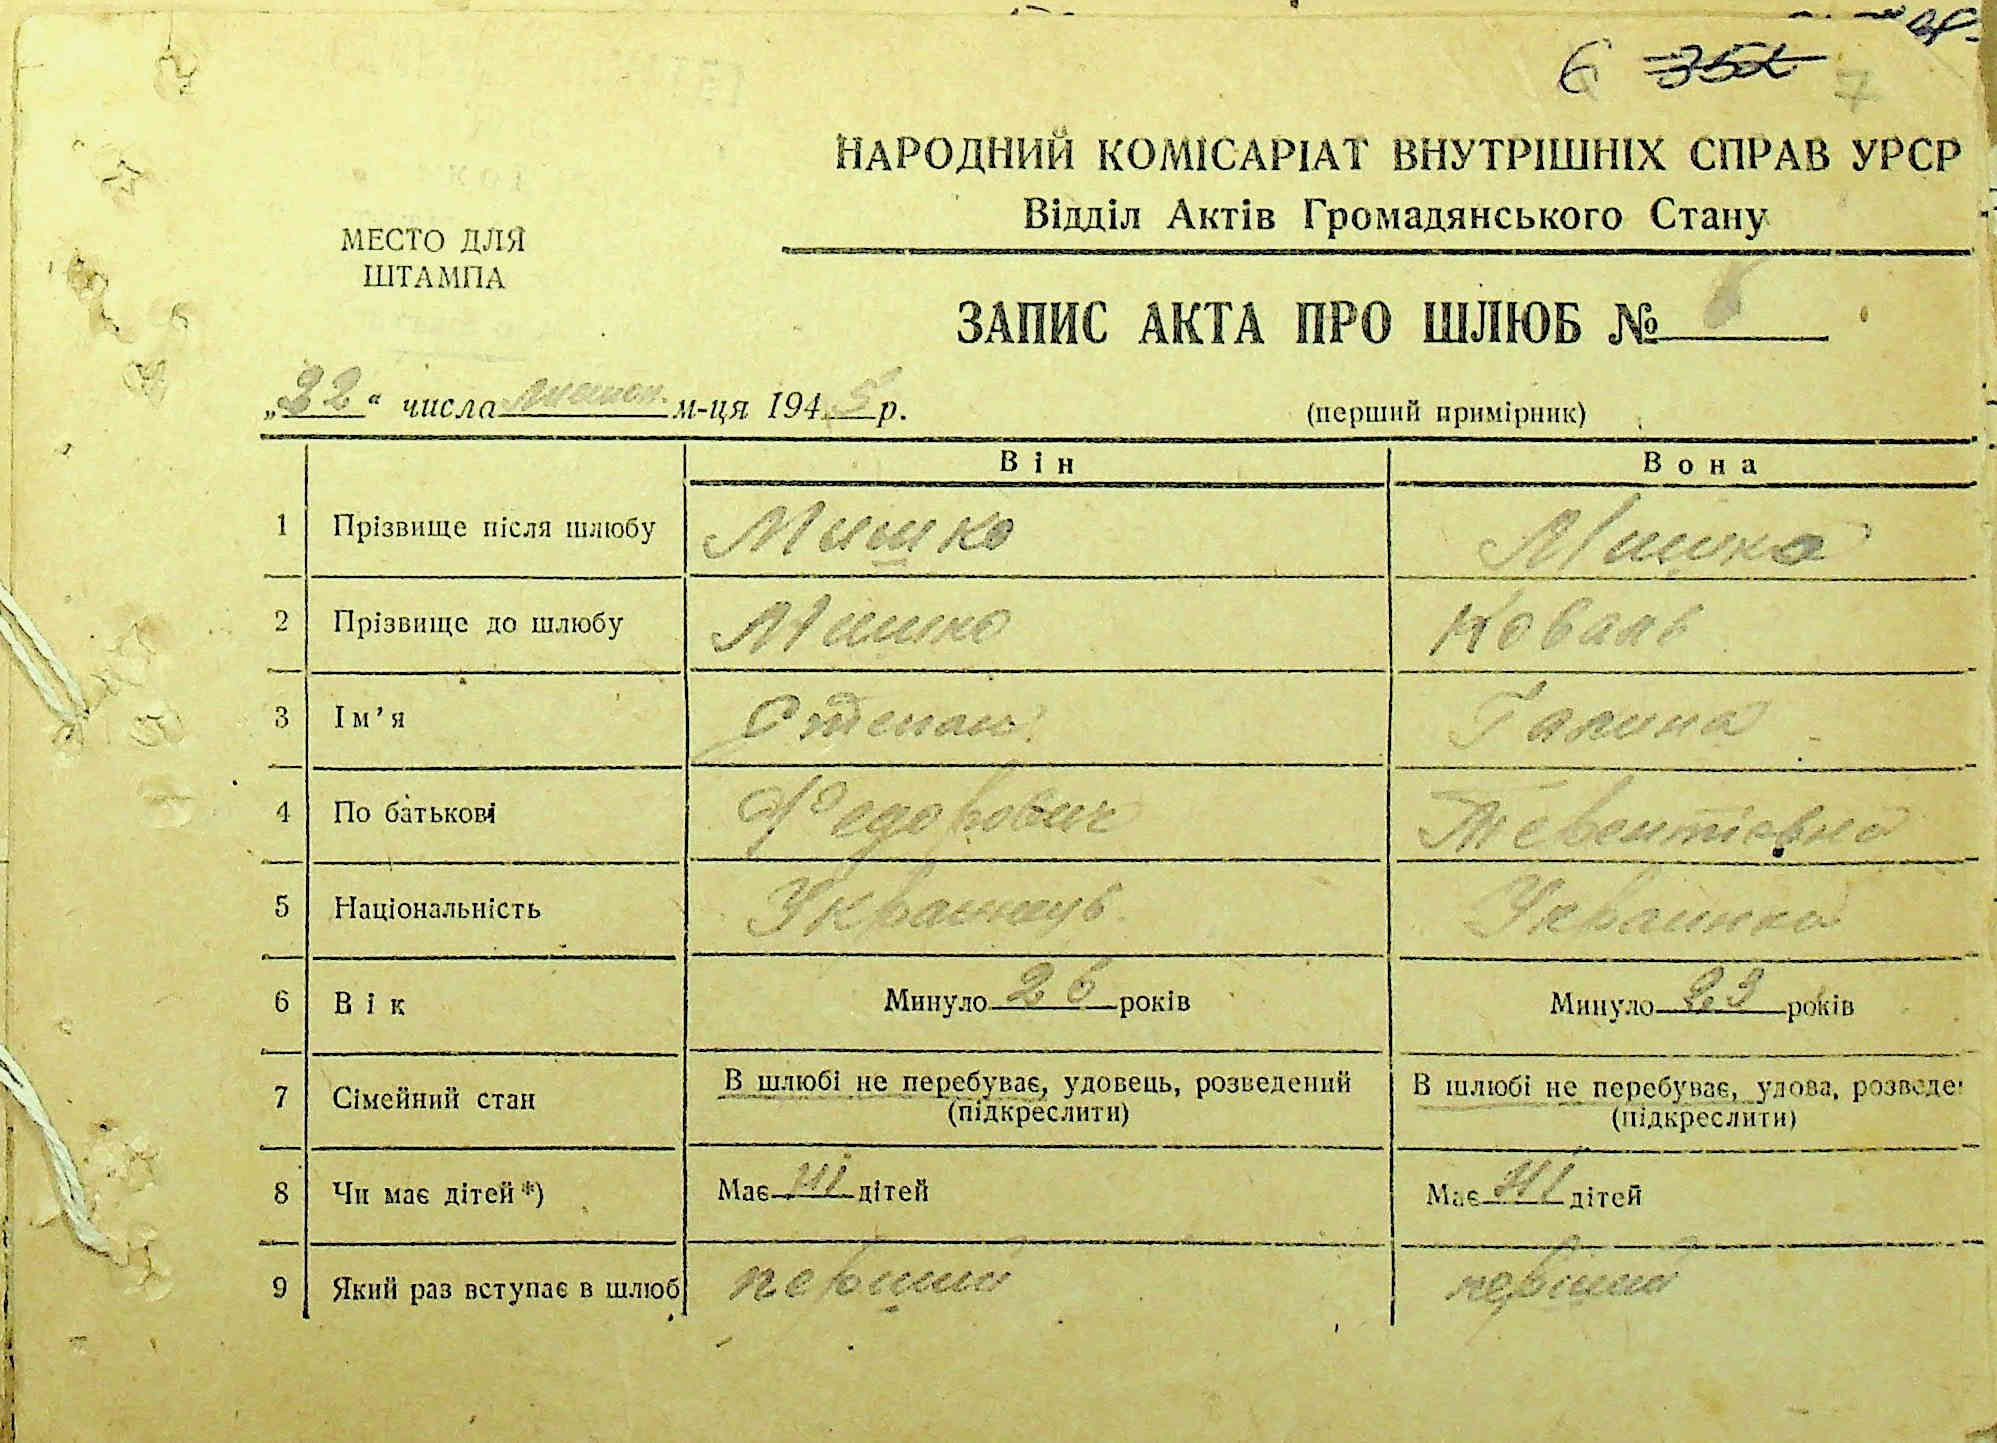 6 352 7
НАРОДНИЙ КОМІСАРІАТ ВНУТРІШНІХ СПРАВ УРСР
Відділ Актів Громадянського Стану
МЕСТО ДЛЯ
ШТАМПА
ЗАПИС АКТА ПРО ШЛЮБ № 6
„22“ числа м-ця 1945 р.
(перший примірник)
Він Вона
1 Прізвище після шлюбу Мишко Мишко
2 Прізвище до шлюбу Мишко Коваль
3 Ім’я Степан Галина
4 По батькові Федорович Терентіевна
5 Національність Украинець Украинка
6 Вік Минуло 26 років Минуло 23 років
7 Сімейний стан В шлюбі не перебуває, удовець, розведений В шлюбі не перебуває, удова, розведе
(підкреслити) (підкреслити)
8 Чи має дітей *) Має ні дітей Має ні дітей
9 Який раз вступає в шлюб перший перший